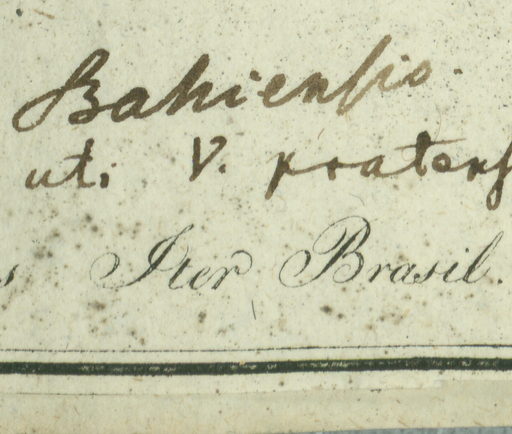 Bahiensis.
uti V. pratens
s Iter Brasil.